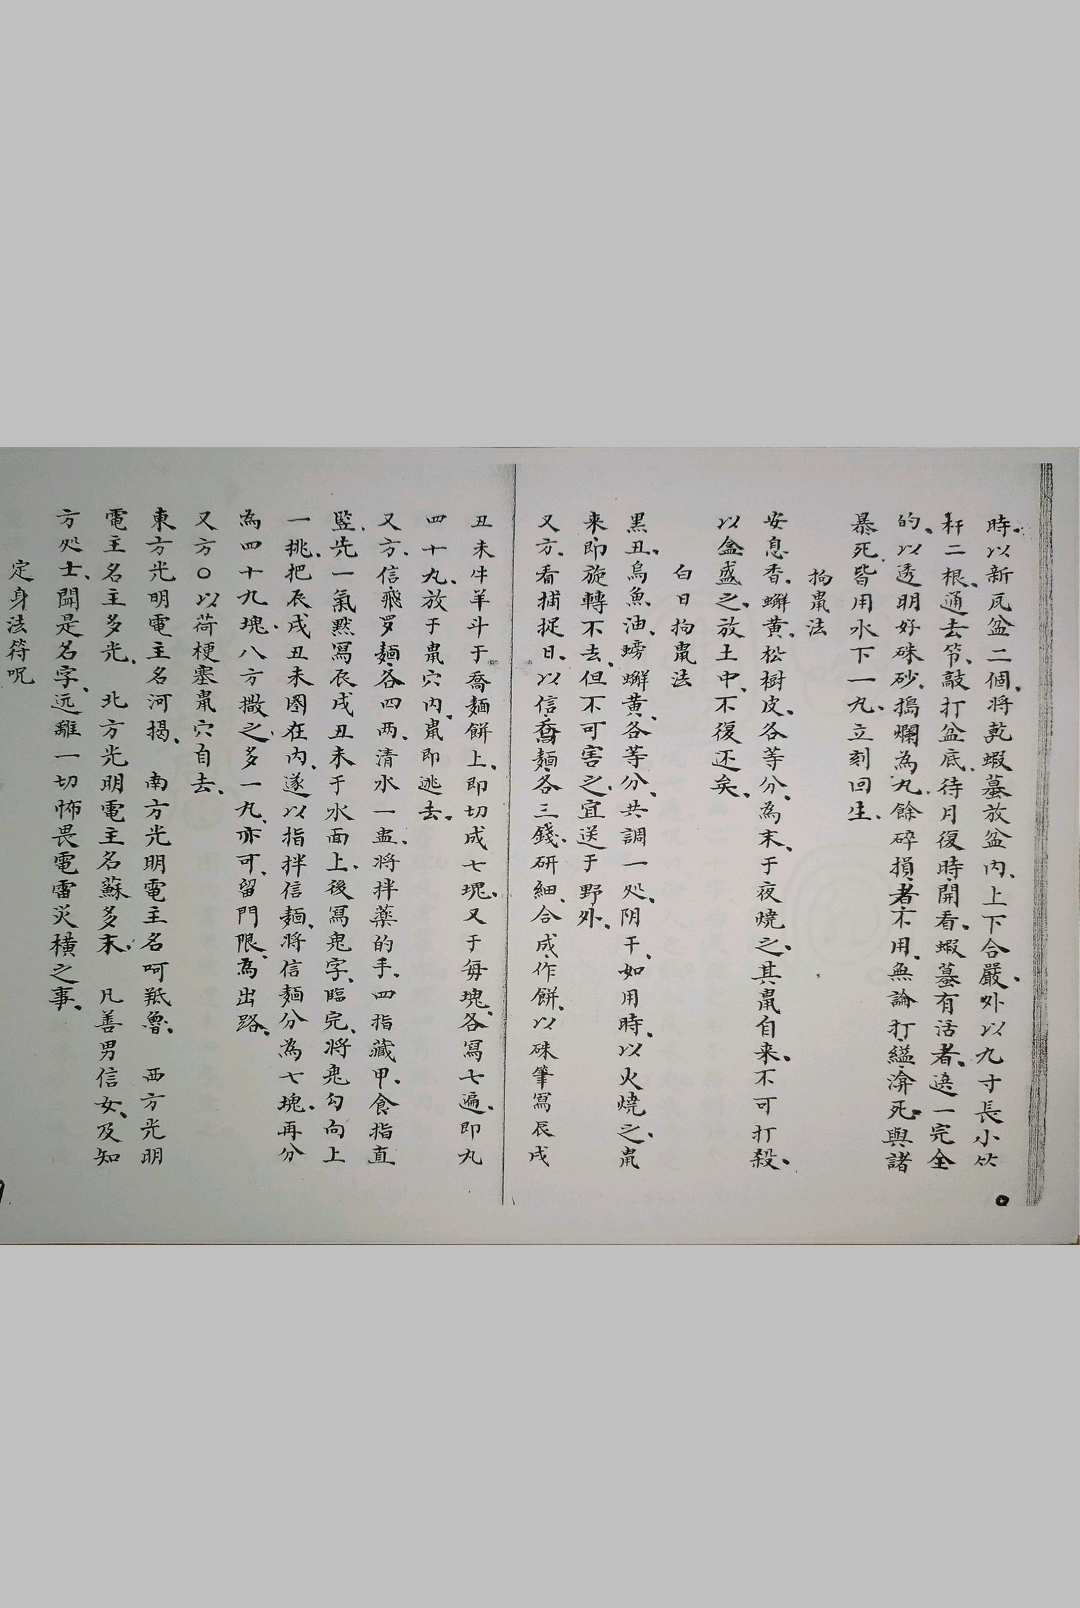 時、以新瓦盆二個、將乾蝦蟇放盆內、上下合嚴、外以九寸長小竹
杆二根、通去節、敲打盆底、待月復時開看、蝦蟇有活者、選一完全
的、以透明好硃砂、搗爛為丸、餘碎損者不用、無論打縊渰死、與諸
暴死、皆用水下一丸、立刻回生、
拘鼠法
安息香、蠏黃、松樹皮、各等分、為末、于夜燒之、其鼠自来、不可打殺、
以盒盛之、放土中、不復还矣、
白日拘鼠法
黑丑、烏魚油、螃蠏黄、各等分、共調一处、阴干、如用時、以火燒之、鼠
来、即旋轉不去、但不可害之、宜送于野外、
又方、看捕捉日、以信蕎麺、各三錢、研細、合成作餅、以硃筆寫辰戌
丑未牛羊斗于蕎麺餅上、即切成七塊、又于每塊、各寫七遍、即丸
四十九、放于鼠穴內、鼠即逃去、
又方、信飛罗麺、各四两、清水一盅、将拌藥的手、四指藏甲、食指直
監、先一氣黙寫辰戌丑未于水面上、後寫鬼字、臨完、將鬼勾向上
一挑、把辰戌丑未圈在內、遂以指拌信麺、将信麺分為七塊、再分
為四十九塊、八方撒之、多一九、亦可、留門限、為出路、
又方〇以荷梗塞鼠穴自去、
東方光明電主名河揭、 南方光明電主名呵羝魯、 西方光明
電主名主多光、 北方光明電主名蘇多末、 凡善男信女、及知
方処士、聞是名字、远離一切怖畏電雷災横之事、
定身法符呪